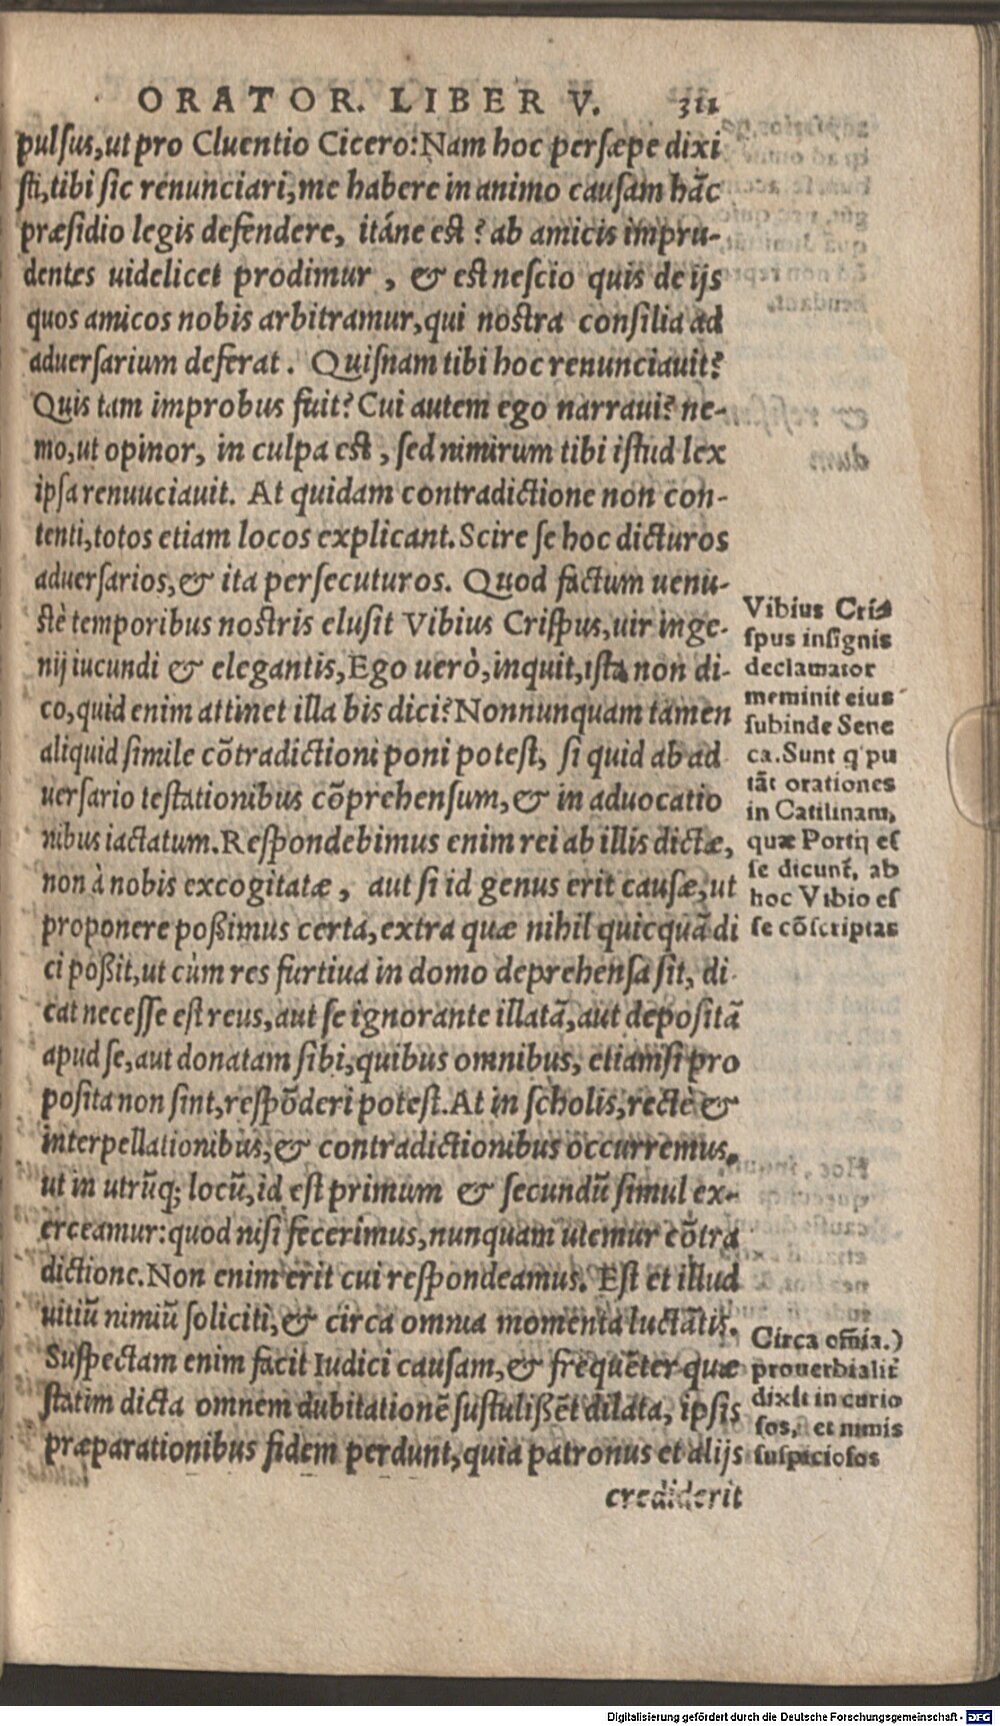 ORATOR. LIBER V. 311
pulsus, ut pro Cluentio Cicero: Nam hoc persæpe dixi
sti, tibi sic renunciari, me habere in animo causam hāc
præsidio legis defendere, itáne est? ab amicis impru-
dentes uidelicet prodimur, & est nescio quis de ijs
quos amicos nobis arbitramur, qui nostra consilia ad
aduersarium deferat. Quisnam tibi hoc renunciauit?
Quis tam improbus fuit? Cui autem ego narraui? ne-
mo, ut opinor, in culpa est, sed nimirum tibi istud lex
ipsa renuuciauit. At quidam contradictione non con-
tenti, totos etiam locos explicant. Scire se hoc dicturos
aduersarios, & ita persecuturos. Quod factum uenu-
stè temporibus nostris elusit Vibius Crispus, uir inge-
nij iucundi & elegantis, Ego uerò, inquit, ista non di-
co, quid enim attinet illa bis dici? Nonnunquam tamen
aliquid simile cōtradictioni poni potest, si quid ab ad
uersario testationibus cōprehensum, & in aduocatio
nibus iactatum. Respondebimus enim rei ab illis dictæ,
non à nobis excogitatæ, aut si id genus erit causæ, ut
proponere possimus certa, extra quæ nihil quicquā di
ci possit, ut cùm res furtiua in domo deprehensa sit, di
cat necesse est reus, aut se ignorante illatā, aut depositā
apud se, aut donatam sibi, quibus omnibus, etiamsi pro
posita non sint, respōderi potest. At in scholis, rectè &
interpellationibus, & contradictionibus occurremus,
ut in utrūq; locū, id est primum & secundū simul ex-
erceamur: quod nisi fecerimus, nunquam utemur cōtra
dictione. Non enim erit cui respondeamus. Est et illud
uitiū nimiū soliciti, & circa omnia momenta luctātis.
Suspectam enim facit Iudici causam, & frequēter quæ
statim dicta omnem dubitationē sustulissēt dilata, ipsis
præparationibus fidem perdunt, quia patronus et alijs
crediderit
Vibius Cri
spus insignis
declamator
meminit eius
subinde Sene
ca. Sunt q pu
tāt orationes
in Catilinam,
quæ Portij es
se dicunt, ab
hoc Vibio es
se cōscriptas
Circa omīa.)
prouerbialit
dixit in curio
sos, et nimis
suspiciosos
Digitalisierung gefördert durch die Deutsche Forschungsgemeinschaft - DFG